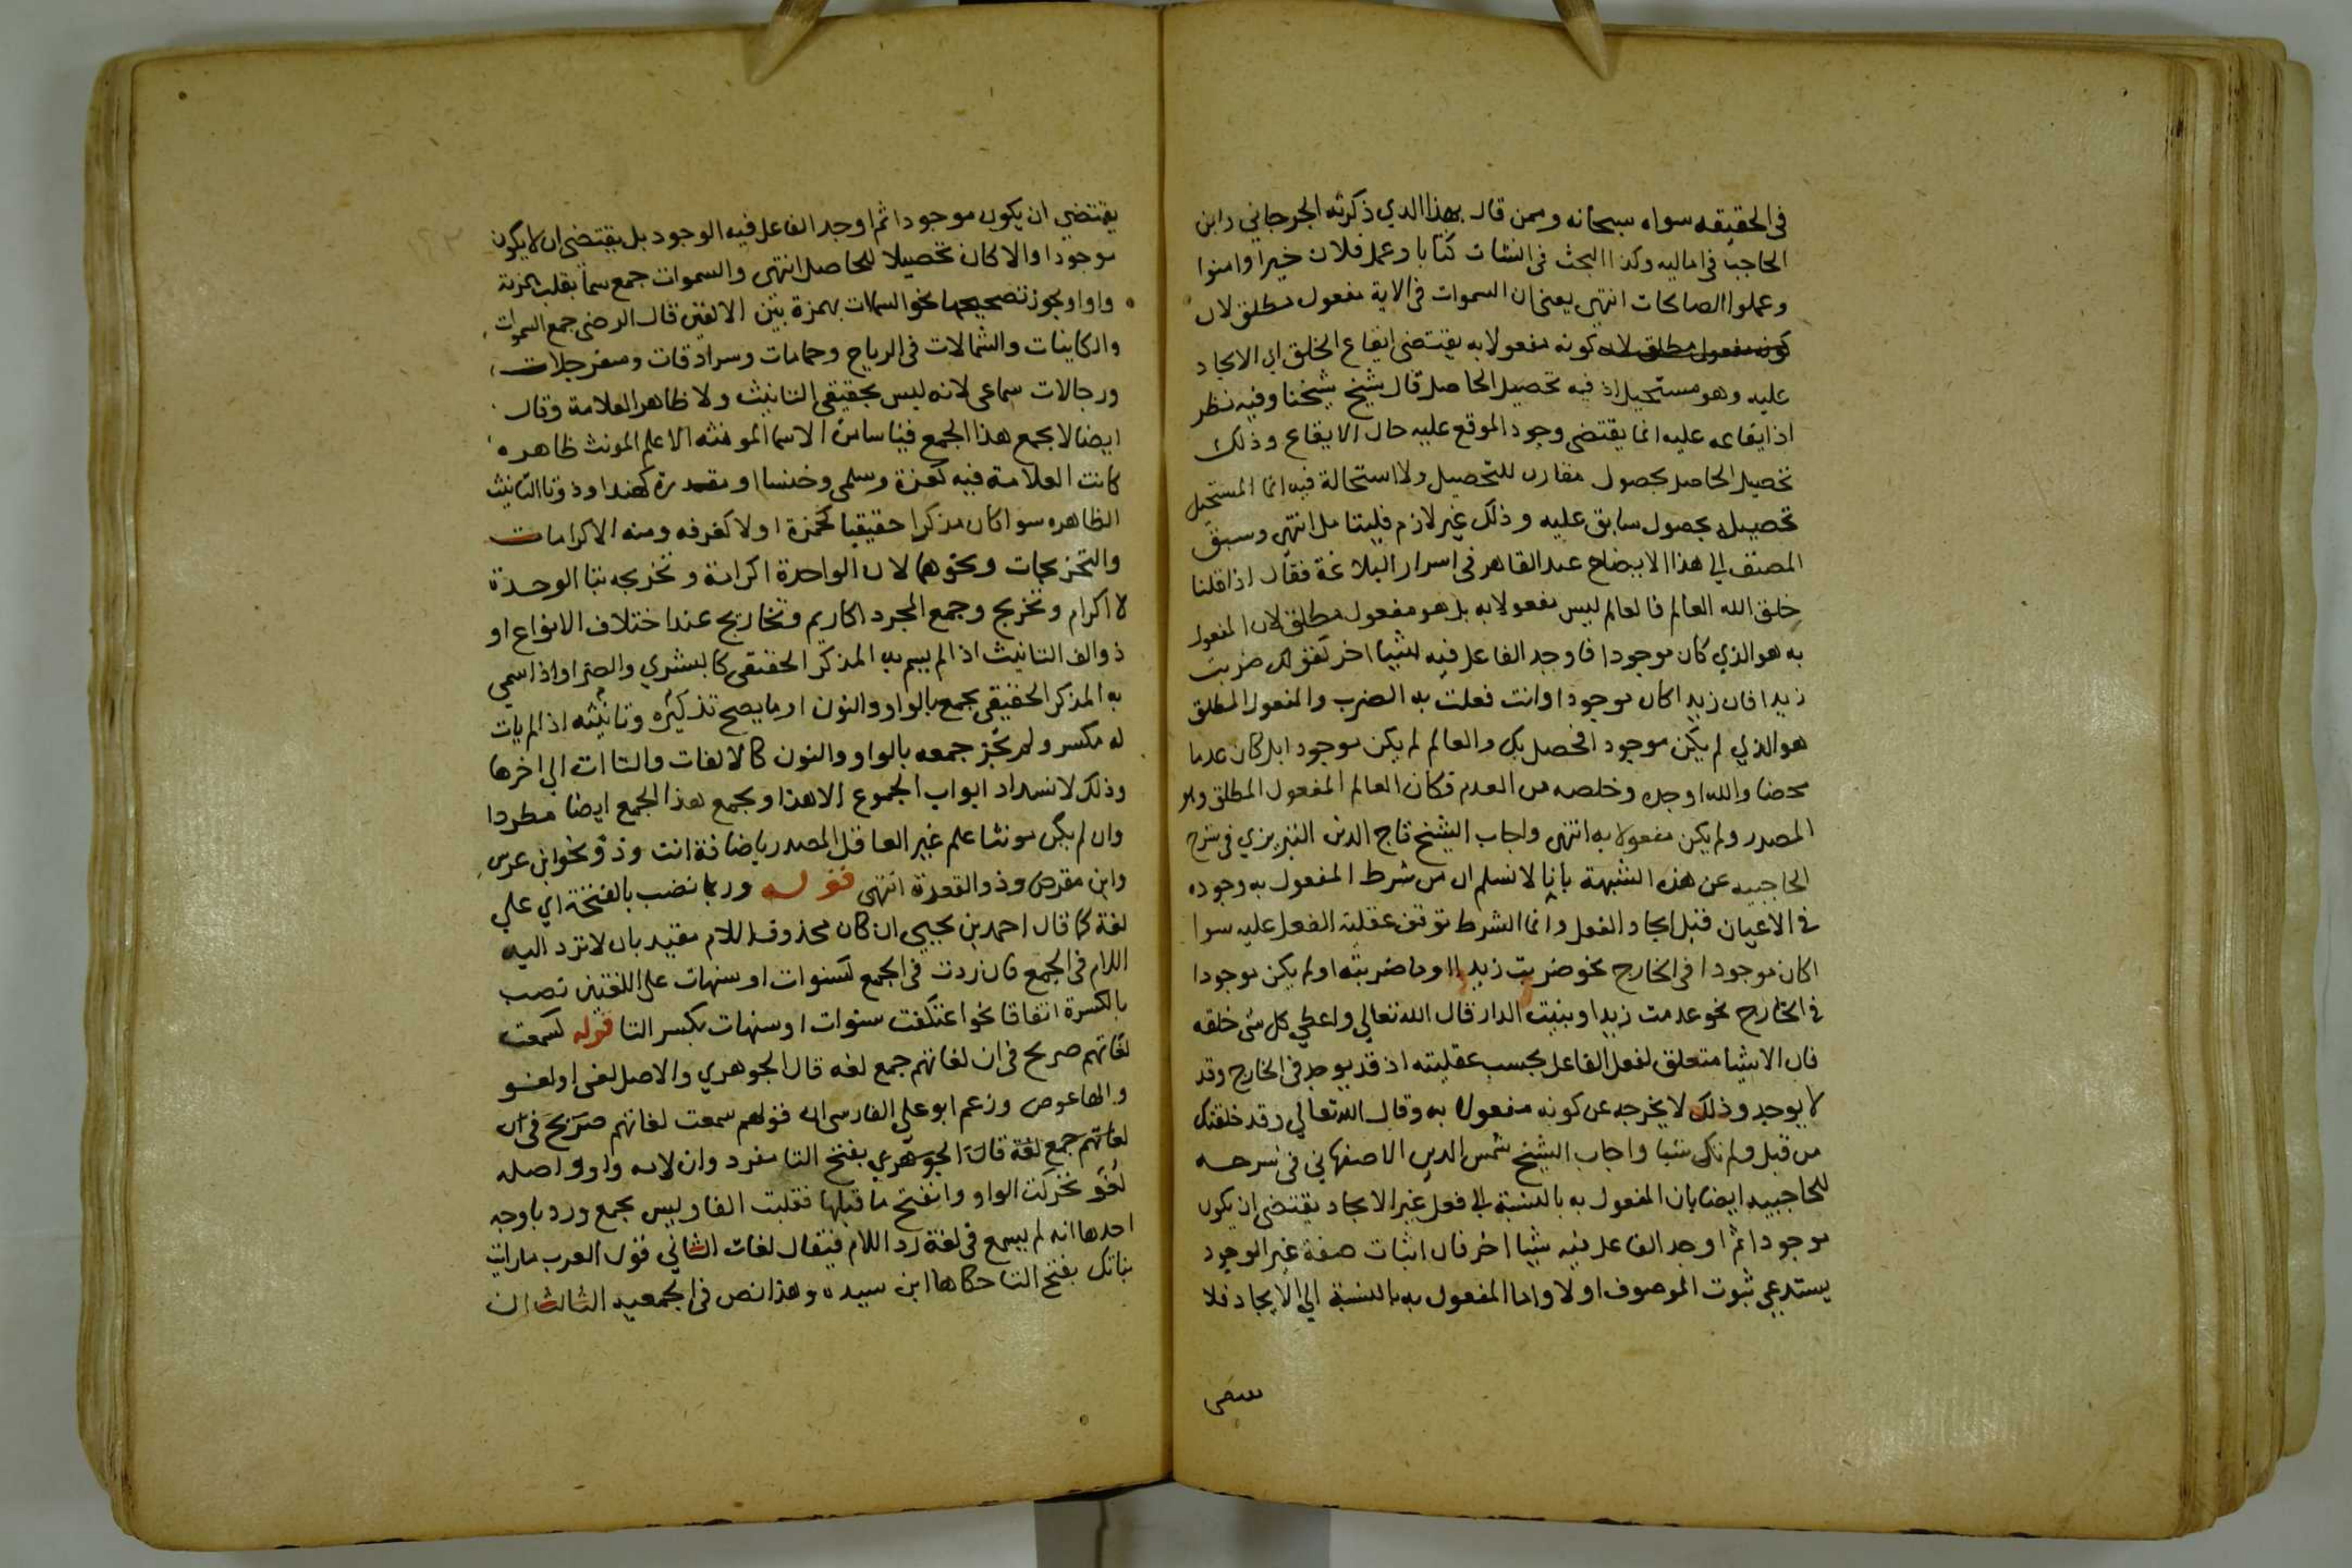 في الحقيقه سواه سبحانه وممن قال بهذا الذي ذكرته الجرجاني وابن
الحاجب في اماليه وكذا البحث في انشات كتابا وعمل فلان خيرا وامنوا
وعملوا الصالحات انتهى يعني ان السموات في الاية مفعول مطلق لان
كونه مفعول مطلق لان كونه مفعولا به يقتضى ايقاع الخلق اي الايجاد
عليه وهو مستحيل اذ فيه تحصيل الحاصل قال شيخ شيخنا وفيه نظر
اذ ايقاعه عليه انما يقتضى وجود الموقع عليه حال الايقاع وذلك
تحصيل الحاصل بحصول مقارن للتحصيل ولا استحالة فيه انما المستحيل
تحصيله بحصول سابق عليه وذلك غير لازم فليتامل انتهى وسبق
المصنف الى هذا الايضاح عبد القاهر في اسرار البلاغة فقال اذا قلنا
خلق الله العالم فالعالم ليس مفعولا به بل هو مفعول مطلق لان المفعول
به هو الذي كان موجودا فاوجد الفاعل فيه شيا اخر كقولك ضربت
زيدا فان زيدا كان موجودا وانت فعلت به الضرب والمفعول المطلق
هو الذي لم يكن موجودا فحصل بك والعالم لم يكن موجودا بل كان عدما
محضا والله اوجده وخلصه من العدم فكان العالم المفعول المطلق وهو
المصدر ولم يكن مفعولا به انتهى واجاب الشيخ تاج الدين التبريزي في شرح
الحاجبيه عن هذه الشبهة بانا لا نسلم ان من شرط المفعول به وجوده
في الاعيان قبل ايجاد الفعل وانما الشرط توقف عقلية الفعل عليه سوا
اكان موجودا في الخارج نحو ضربت زيدا او ما ضربته او لم يكن موجودا
في الخارج نحو عدمت زيدا وبنيت الدار قال الله تعالي واعطي كل شى خلقه
فان الاشيا متعلق لفعل الفاعل بحسب عقليته اذ قد يوجد في الخارج وقد
لا يوجد وذلك لا يخرجه عن كونه مفعولا به وقال الله تعالي وقد خلقتك
من قبل ولم تك شيا واجاب الشيخ شمس الدين الاصفهاني في شرحه
للحاجبيه ايضا بان المفعول به بالنسبة الى فعل غير الايجاد يقتضى ان يكون
موجودا ثم اوجد الفاعل فيه شيا اخر فان اثبات صفة غير الوجود
يستدعي ثبوت الموصوف اولا واما المفعول به بالنسبة الي الايجاد فلا
يقتضي ان يكون موجودا ثم اوجد الفاعل فيه الوجود بل يقتضى ان لا يكون
موجودا والا كان تحصيلا للحاصل انتهى والسموات جمع سما بقلب الهمزة
واوا ويجوز تصحيحها نحو السمات بهمزة بين الالفين قال الرضى جمع السموات
والكاينات والشمالات في الرياح وحمامات وسرادقات وسفرجلات
ورجالات سماعى لانه ليس بحقيقى التانيث ولا ظاهر العلامة وقال
ايضا لا يجمع هذا الجمع قياسا من الاسما المونثه الا علم المونث ظاهره
كانت العلامة فيه كعزة وسلمى وخنسا او مقدرة كهند او ذو تا التانيث
الظاهره سوا كان مذكرا حقيقيا كحمزة او لا كغرفه ومنه الاكرامات
والتخريجات ونحوهما لان الواحدة اكرامة وتخريجه بتا الوحدة
لا اكرام وتخريج وجمع المجرد اكاريم وتخاريج عند اختلاف الانواع او
ذو الف التانيث اذا لم يسم به المذكر الحقيقى كالبشري والصرا واذا سمي
به المذكر الحقيقى يجمع بالواو والنون او ما يصح تذكيره وتانيثه اذا لم يات
له مكسر ولم يجز جمعه بالواو والنون كالالفات والتاات الي اخرها
وذلك لانسداد ابواب الجموع الا هذا ويجمع هذا الجمع ايضا مطردا
وان لم يكن مونثا علم غير العاقل المصدر باضافة ابن وذو نحو ابن عرس
وابن مقرض وذو القعدة انتهى قوله وربما نصب بالفتحة اي علي
لغة كما قال احمد بن يحيى ان كان محذوف اللام مقيد بان لا ترد اليه
اللام في الجمع فان ردت في الجمع كسنوات او سنهات على اللغتين نصب
بالكسرة اتفاقا نحو اعتكفت سنوات او سنهات بكسر التا قوله كسمعت
لغاتهم صريح في ان لغاتهم جمع لغه قال الجوهري والاصل لغى او لغو
والها عوض وزعم ابو علي الفارسى ان قولهم سمعت لغاتهم صريح في ان
لغاتهم جمع لغة قال الجوهري بفتح التا مفرد وان لامه واو واصله
لغو تحركت الواو وانفتح ما قبلها فقلبت الفا وليس بجمع ورد باوجه
احدها انه لم يسمع في لغة رد اللام فيقال لغات الثاني قول العرب ما رايت
بناتك بفتح التا حكاها ابن سيده وهذا نص في الجمعيه الثالث ان